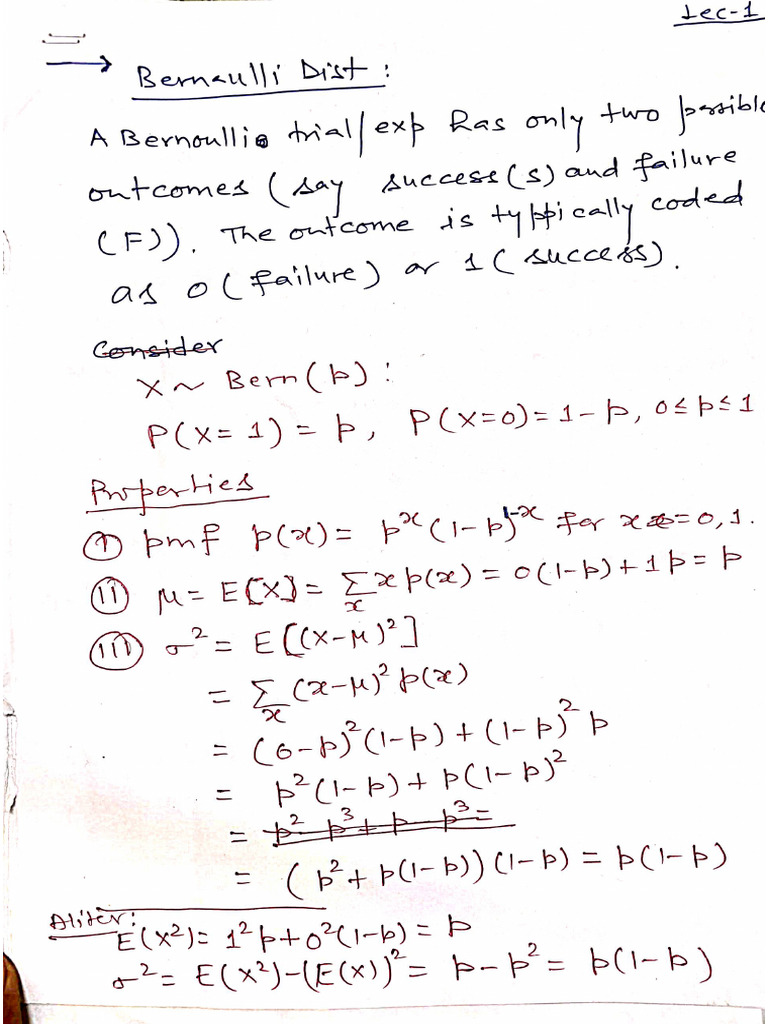 Lec-1
Bernaulli Dist :
A Bernoullie trial/exp has only two possible
outcomes (say success(s) and failure
(F)). The outcome is typpically coded
as 0 (failure) or 1 (success).
Consider
X ~ Bern(p) :
P(X=1) = p, P(X=0) = 1-p, 0≤p≤1
Properties
(i) pmf p(x) = p^x (1-p)^{1-x} for x = 0, 1.
(ii) μ = E[X] = Σ_x x p(x) = 0(1-p) + 1p = p
(iii) σ² = E[(X-μ)²]
= Σ_x (x-μ)² p(x)
= (0-p)² (1-p) + (1-p)² p
= p²(1-p) + p(1-p)²
= p² p³ + p p³ =
= (p² + p(1-p)) (1-p) = p(1-p)
Aliter:
E(X²) = 1² p + 0² (1-p) = p
σ² = E(X²) - (E(X))² = p - p² = p(1-p)